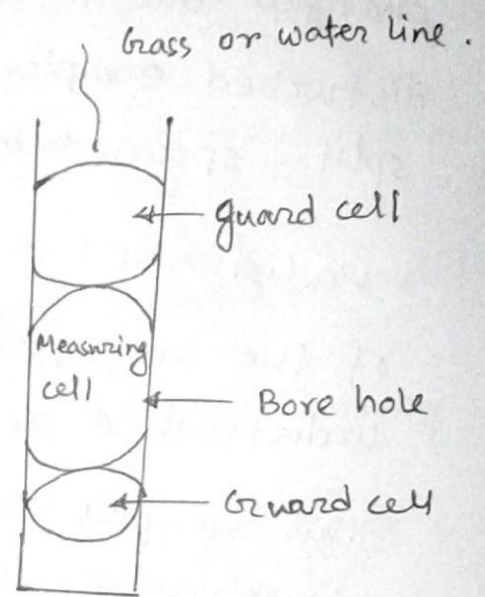 Gass or water line.
guard cell
Measuring
cell
Bore hole
Guard cell